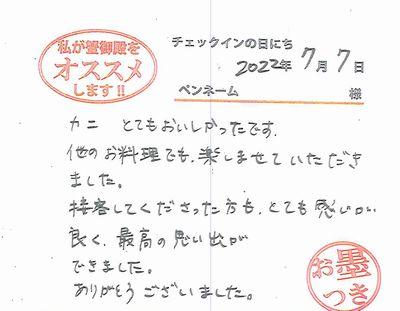 私が蟹御殿を
オススメ
します!!
チェックインの日にち
2022年 7月 7日
ペンネーム 様
カニ とてもおいしかったです。
他のお料理でも、楽しませていただき
ました。
接客してくださった方も、とても感じが
良く、最高の思い出が
できました。
ありがとうございました。
お墨
つき